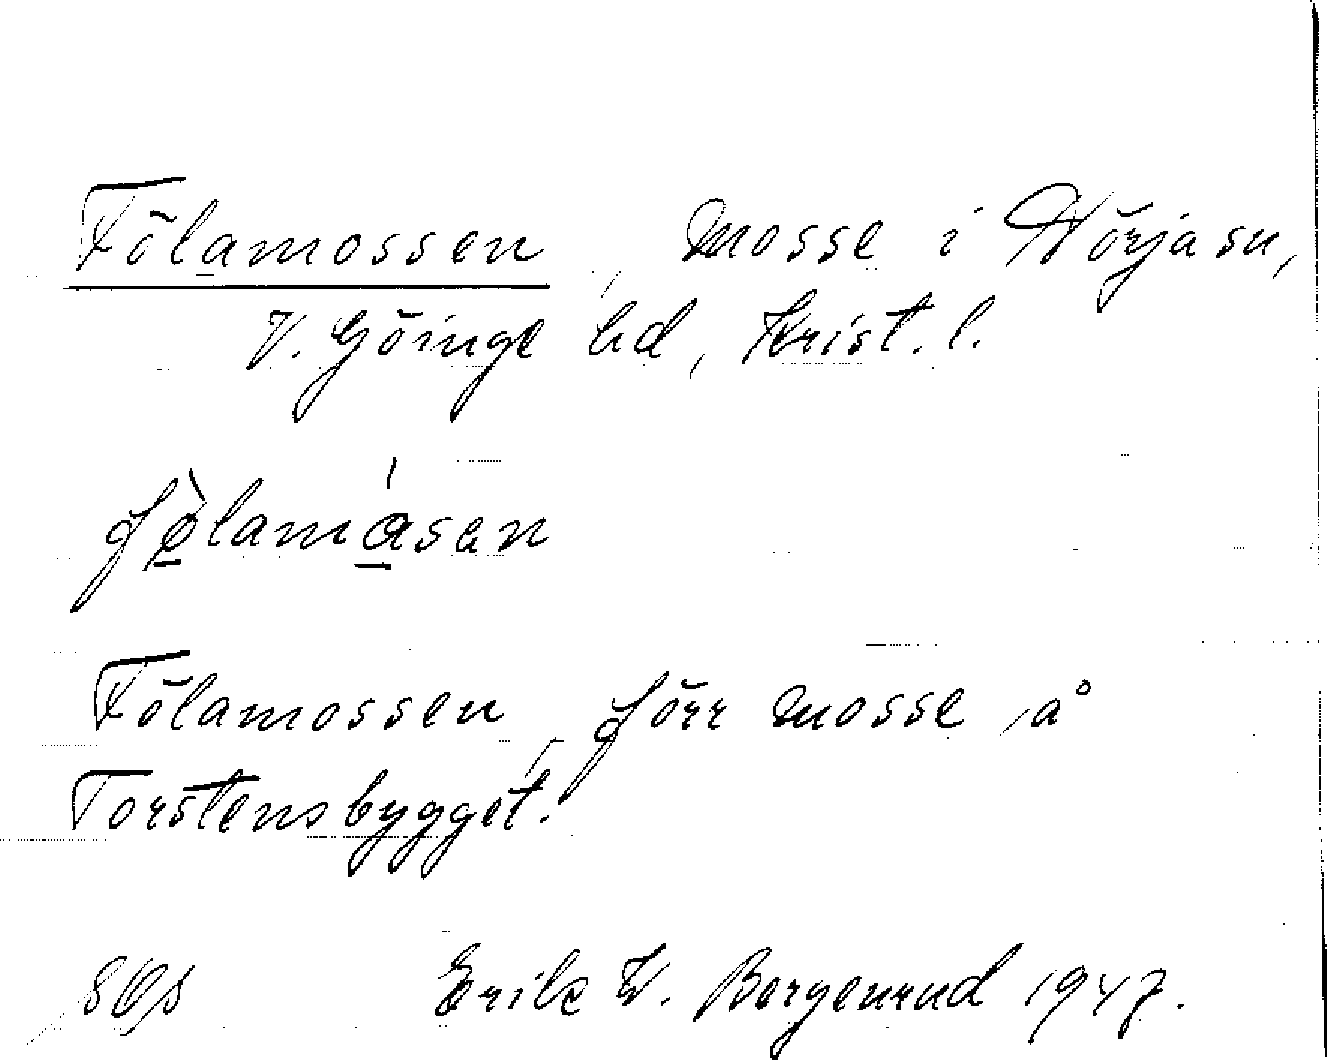 Fölamossen, mosse i Nörja sn,
V. Göinge hd, Krist. l.
fø̀lamásen
Fölamossen, förr mosse å
Torstensbygget.
Erik W. Borgenrud 1947.